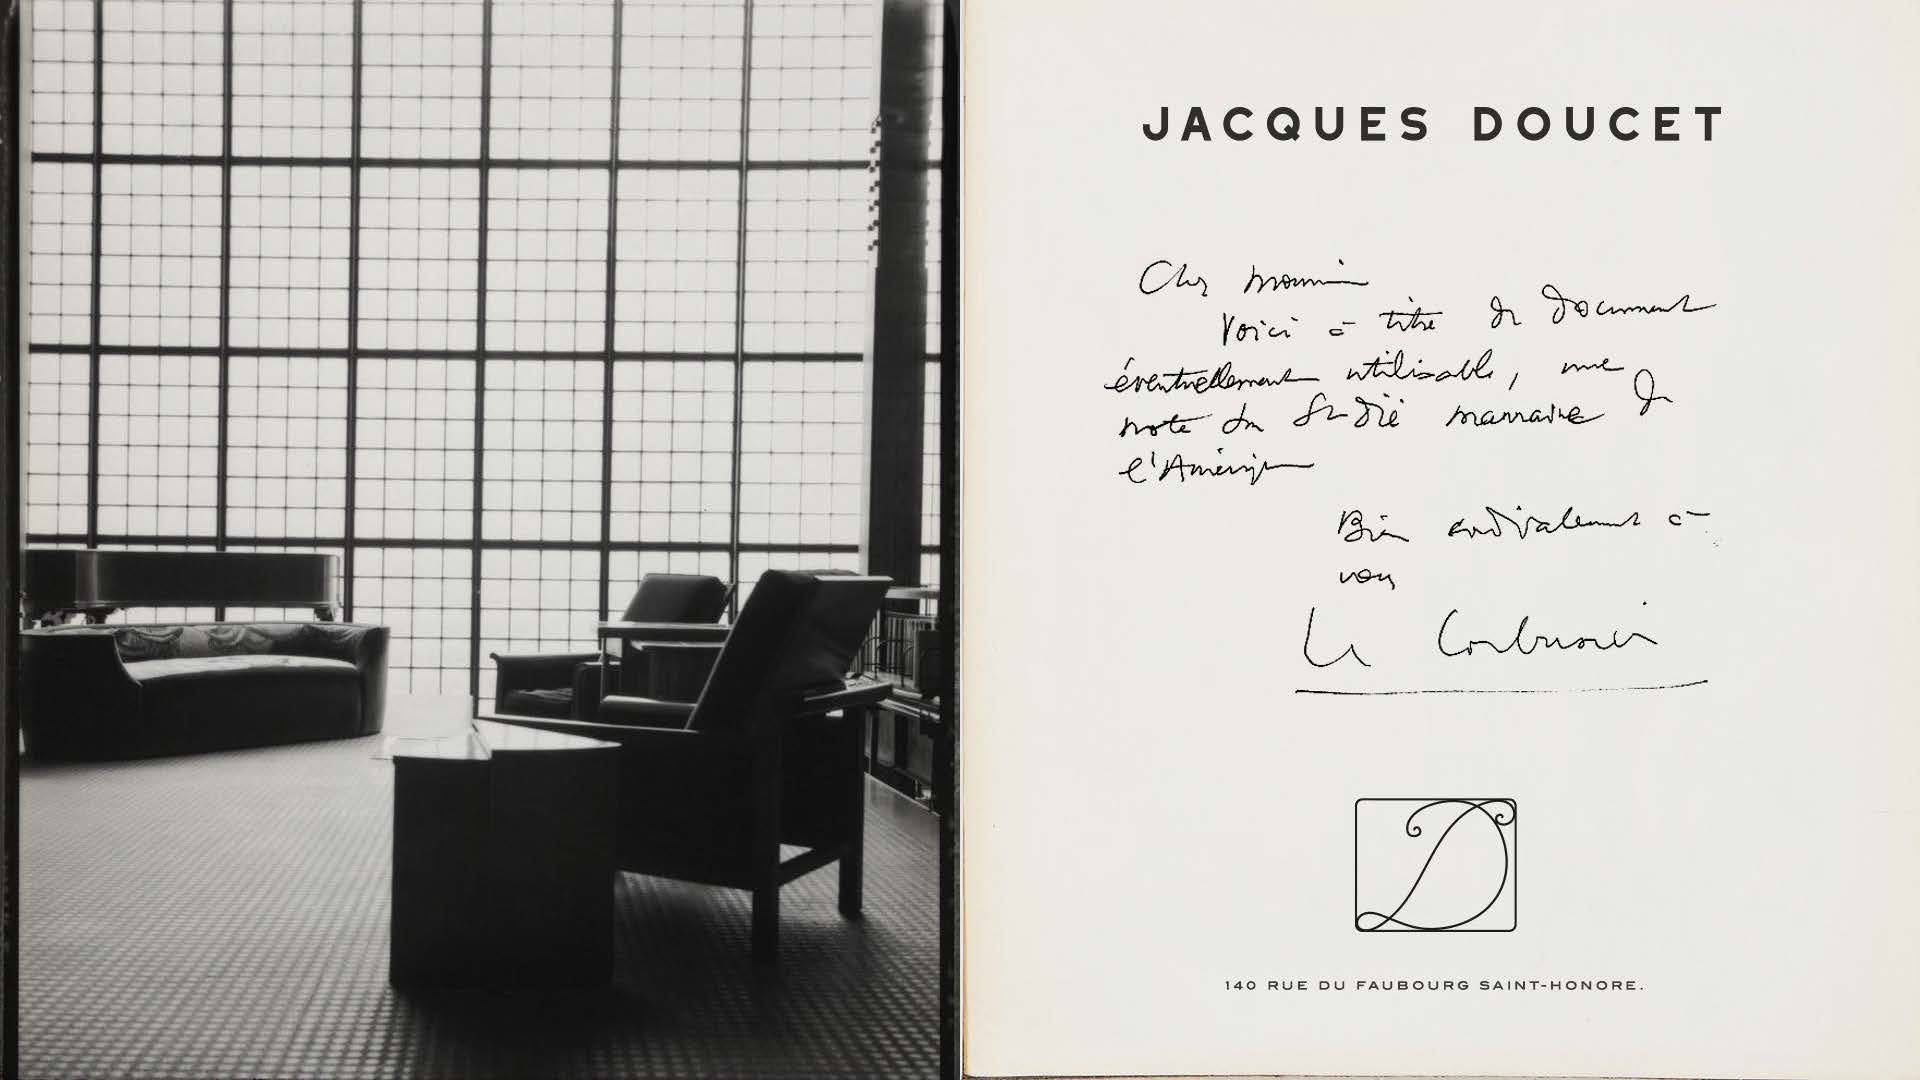 JACQUES DOUCET
Cher monsieur
Voici à titre de document
éventuellement utilisable, une
note du St-Dié marraine de
l'Amérique
Bien cordialement à
vous
Le Corbusier
140 RUE DU FAUBOURG SAINT-HONORE.